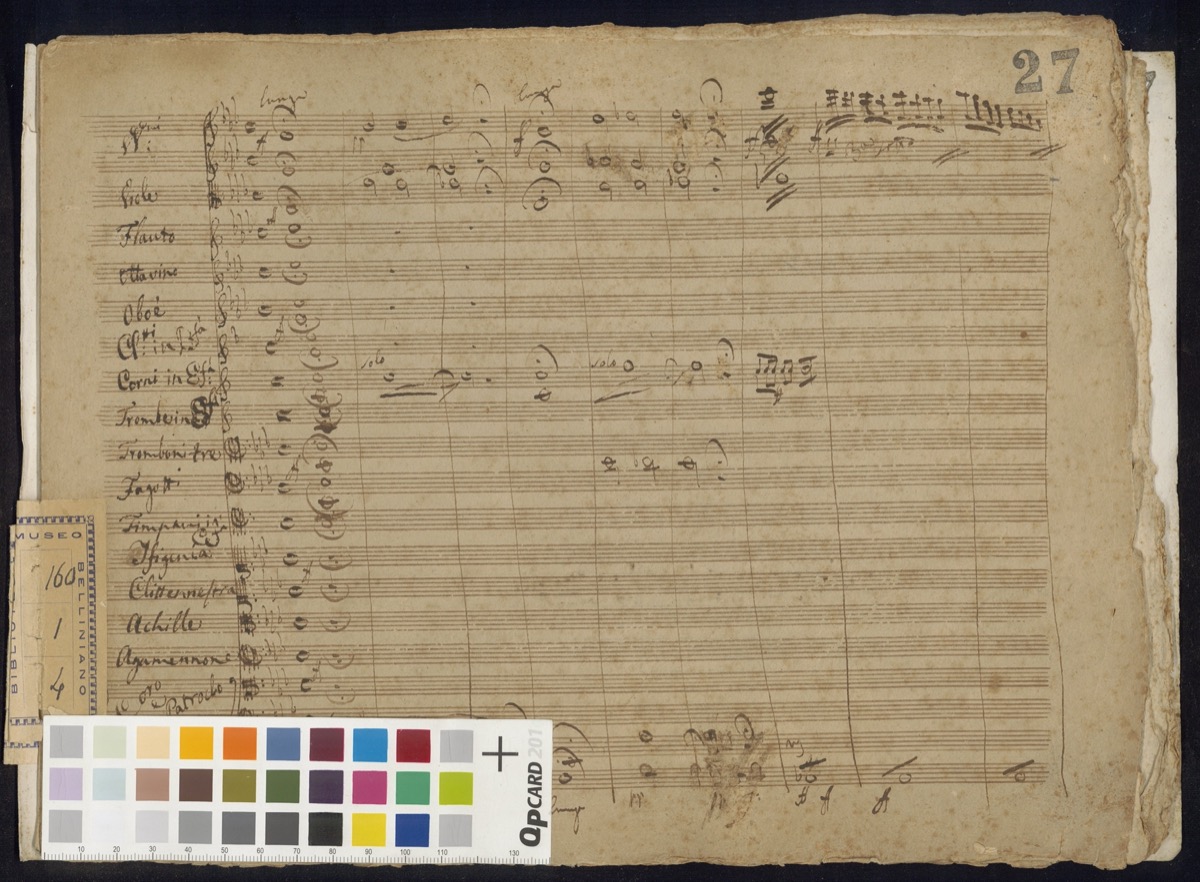 27
lunga
lunga
Vni
Viole
Flauto
Ottavino
Oboè
Cltti in
solo
solo
Corni in Efa
Trombe in
Tromboni tre
Fagotti
Timpani in
Ifigenia
Clitennestra
Achille
Agamennone
Coro
e Patroclo
lunga
MUSEO
BELLINIANO
BIBLIO
160
1
4
QPCARD 201
10 20 30 40 50 60 70 80 90 100 110 130